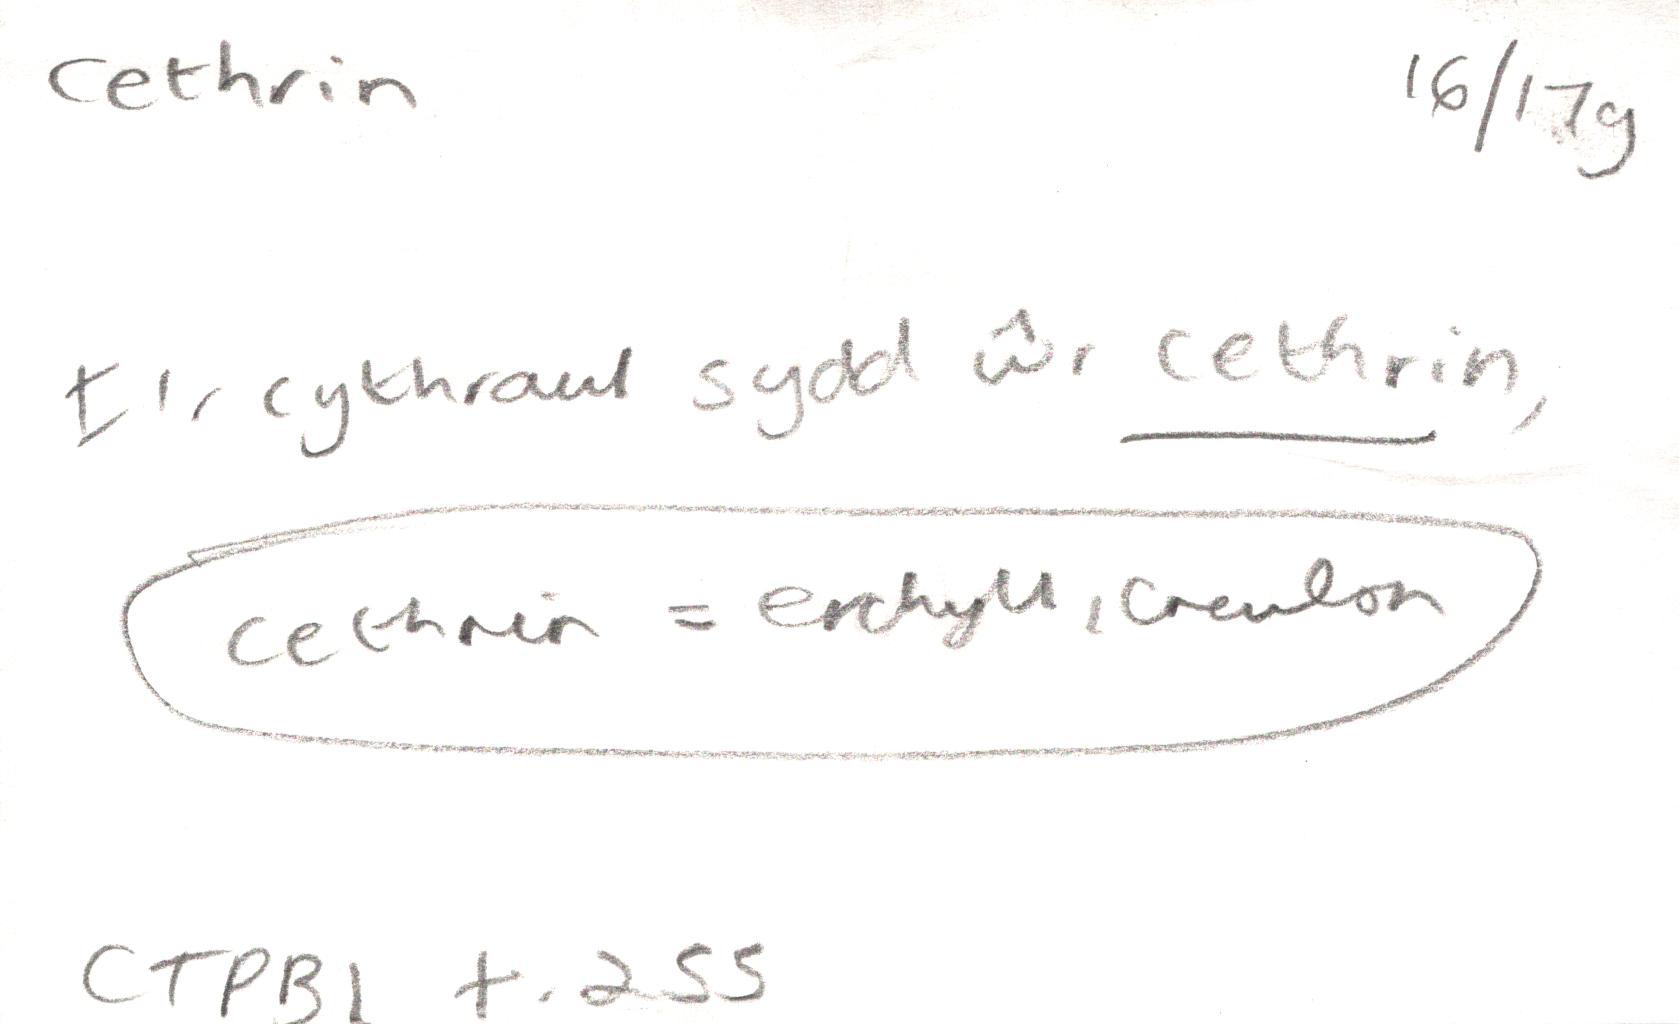 Cethrin 16/17g
I'r cythraul sydd ŵr cethrin,
cethrin = erchyll, creulon
CTPB1 t. 255